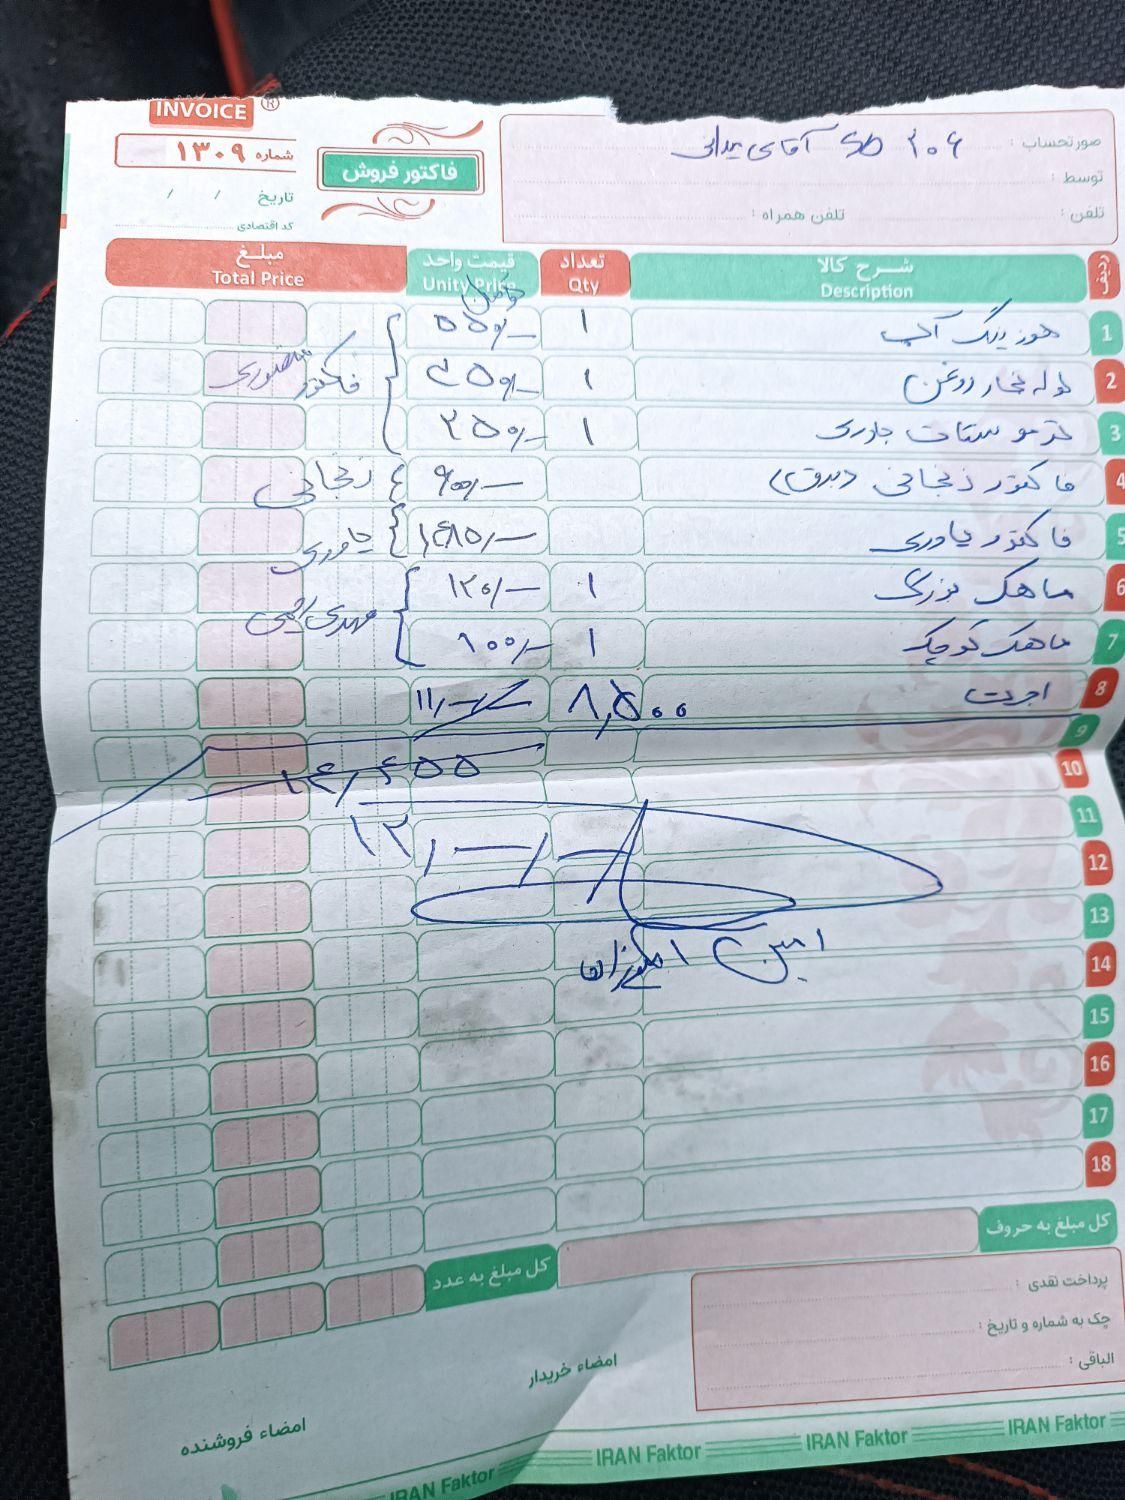 INVOICE ®
شماره ۱۳۰۹
تاریخ / /
کد اقتصادی
فاکتور فروش
صورتحساب : ۲۰۶ SD آقای
توسط :
تلفن : تلفن همراه :
ردیف شـــرح کالا تعداد قیمت واحد مبلــغ
Description Qty Unity Price Total Price
1 هوزینگ آب ۱ ۵۵۰/-
2 لوله بخار روغن ۱ ۲۵۰/- فاکتور منصوری
3 ترموستات جاوری ۱ ۲۵۰/-
4 فاکتور زنجانی (برق) ۹۰۰/- زنجانی
5 فاکتور یاوری ۱,۴۸۵/- یاوری
6 ماهک بزرگ ۱ ۱۲۰/-
7 ماهک کوچک ۱ ۱۰۰/-
8 اجرت ۸,۵۰۰
9
۱۲,۴۵۵
10
11
۱۲,—/—
12
13
امین
14
15
16
17
18
کل مبلغ به حروف
کل مبلغ به عدد
پرداخت نقدی :
چک به شماره و تاریخ :
الباقی :
امضاء خریدار
امضاء فروشنده
IRAN Faktor IRAN Faktor IRAN Faktor